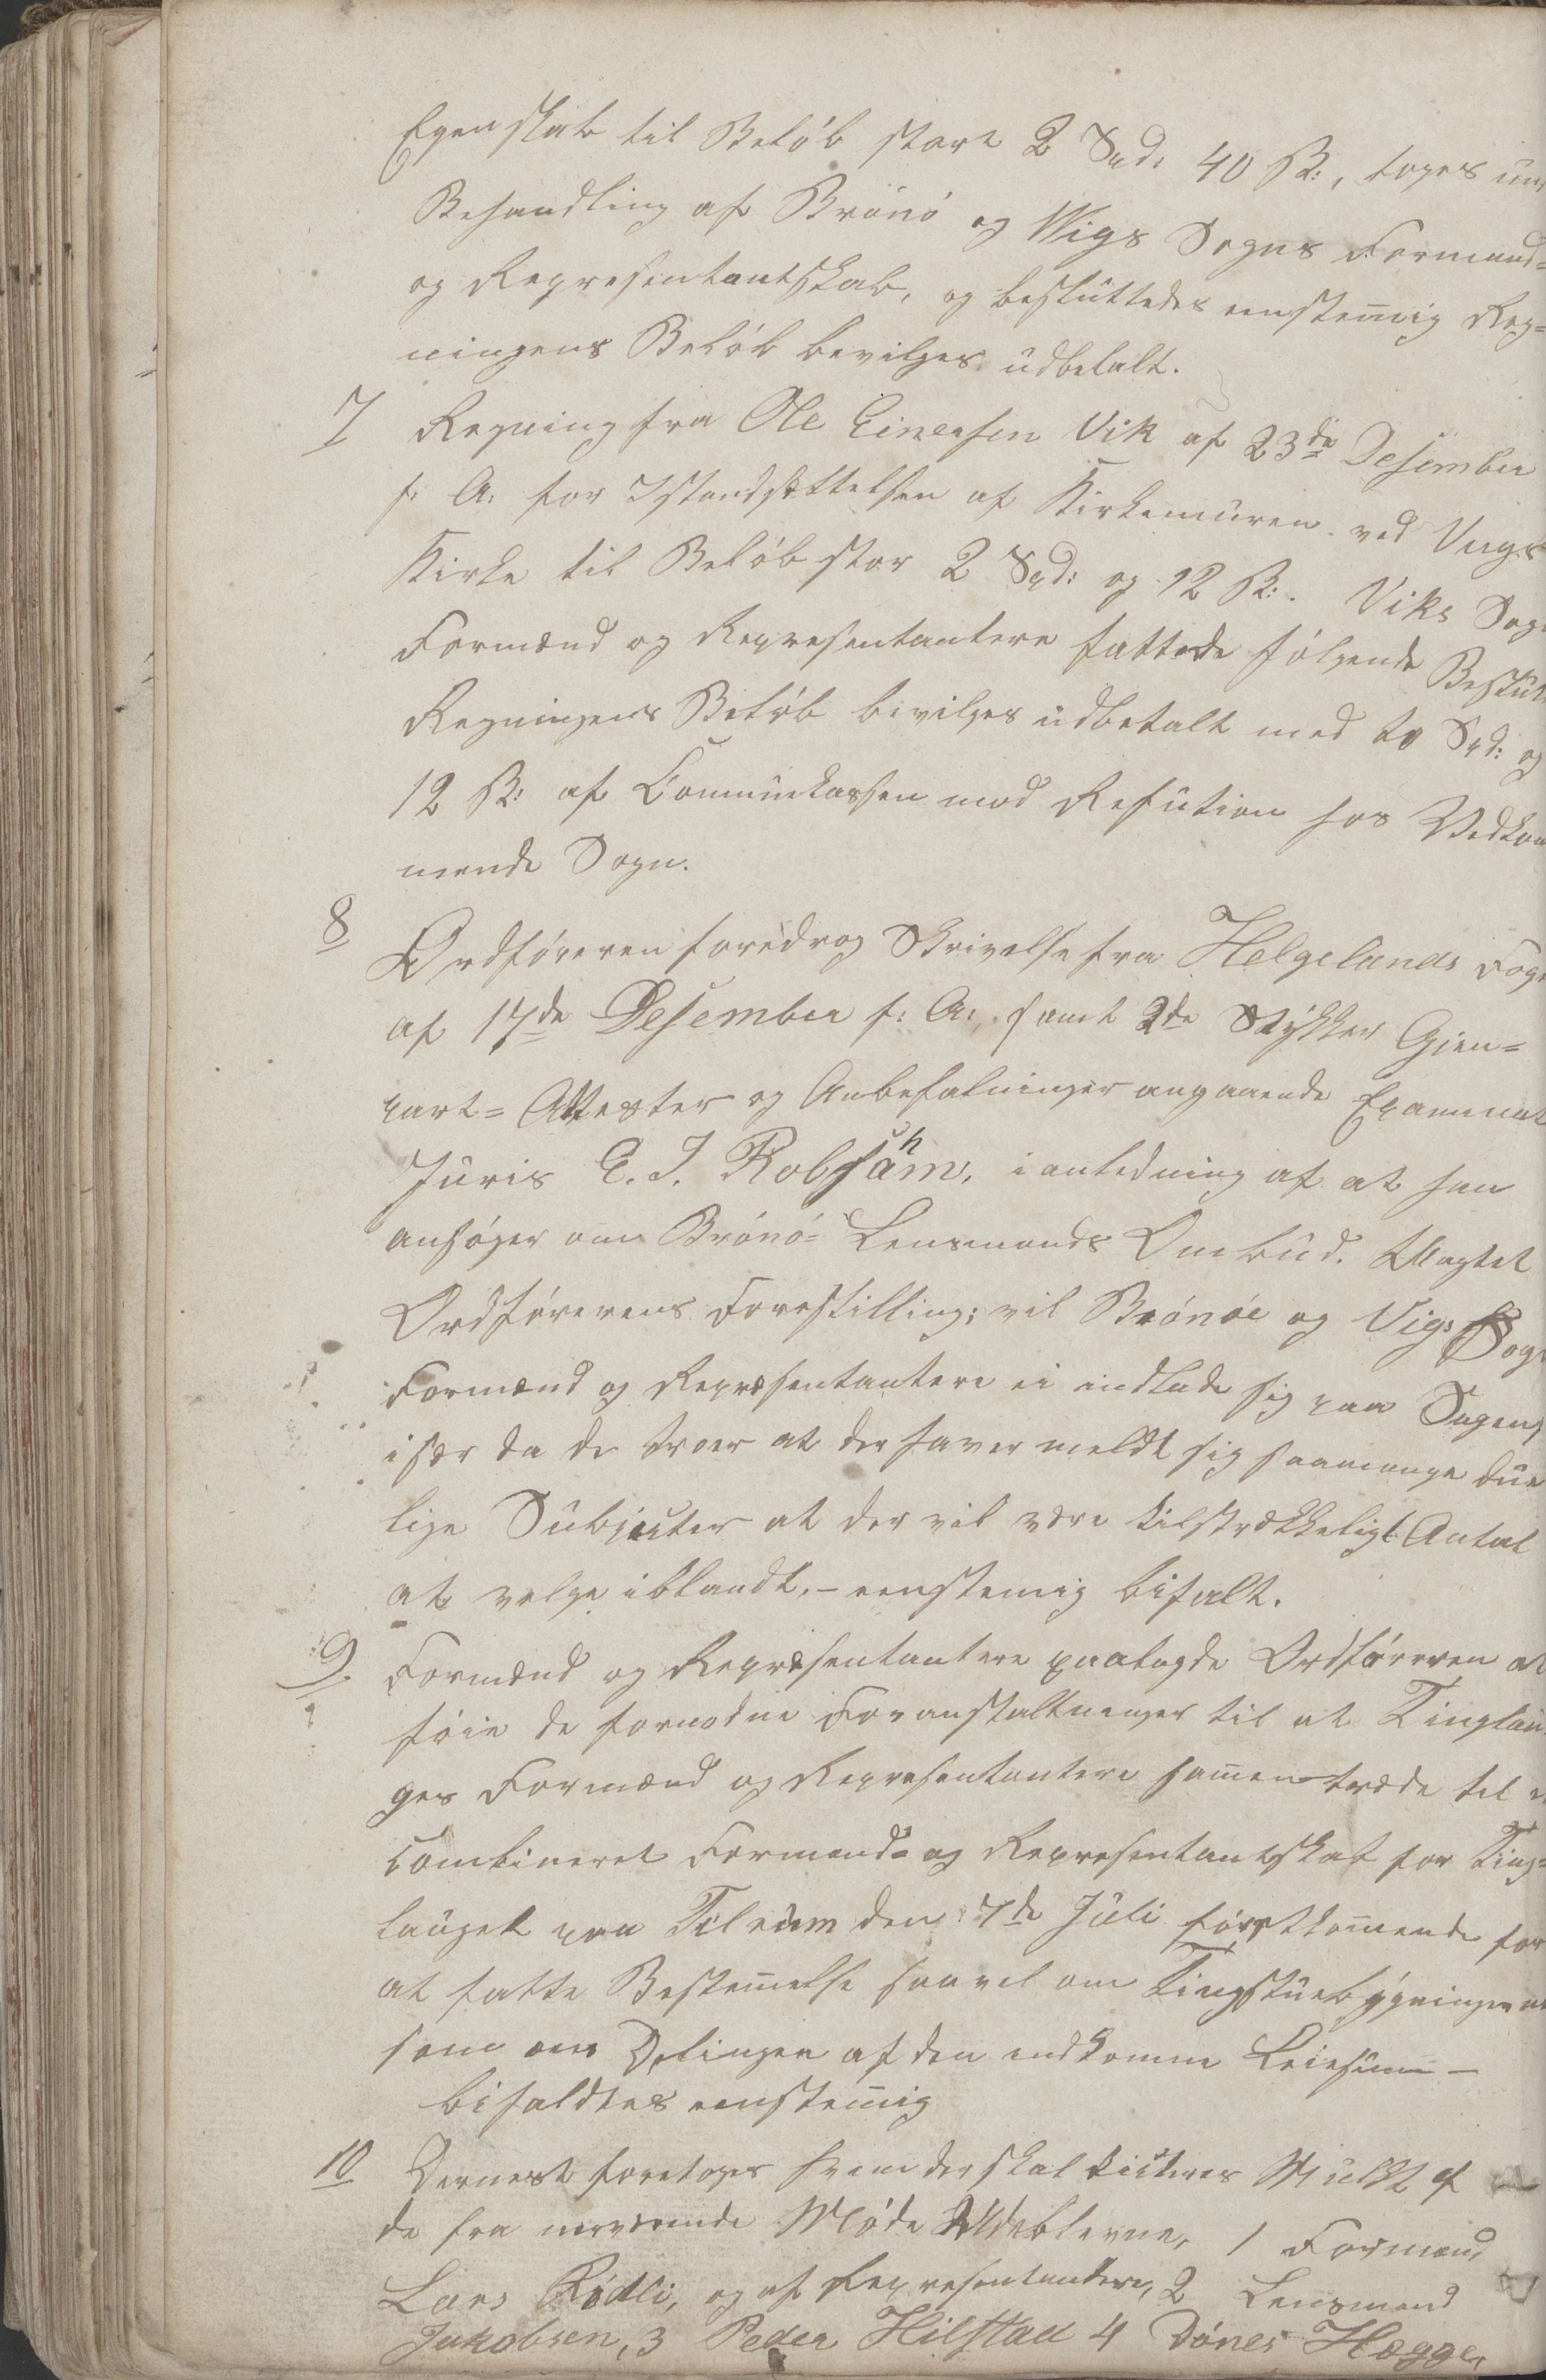 Egenskab til Beløb stort 2 Spd: 40 ß:, toges un
Behandling af Brönö og Wigs Sogns Formand=
og Representantskab, og besluttedes eenstem̅ig Reg=
ningens Beløb bevilges udbetalt.
7 Regning fra Ole Einersen Vik af 23de Desember
f: A: for Istandsættelsen af Kirkemuren ved Vigs
Kirke til Beløb stor 2 Spd: og 12 ß:. Viks Sog
Formænd og Representantere fattede følgende Beslut
Regningens Beløb bevilges udbetalt med to Spd: og
12 ß: af Communekassen mod Refution hos Vedkom
mende Sogn.
8 Ordføreren foredrog Skrivelse fra Helgelands Fog
af 17de Desember f: A: samt 2de Stykker Gjen=
part=Attester og Anbefalninger angaaende Examinat
Juris E. J. Robsahm, i anledning af at han
ansøger om Brönö= Lensmands Ombud. Uagtet
Ordførerens Forestilling; vil Brönöe og Vigs Sogn
Formænd og Repræsentantere ei indlade sig paa Sagen,
især da de troer at der haver meldt sig saamange due
lige Subjecter at der vil være tilstrækkeligt Antal
at velge iblandt, – eenstemig bifalt.
9 Formænd og Repræsentantere paalagde Ordføreren at
føie de fornødne Foranstaltninger til at Tinglau
ges Formænd og Repræsentantere sam̅entræde til e
combineret Formand= og Representantskab for Ting=
lauget paa Tilrem den 7de Juli førstkom̅ende for
at fatte Bestem̅else saavel om Tingstuebygningen
som om Delingen af den indkomne Leiesum̅ –
bifaldtes eenstem̅ig
10 Dernest foretoges hvem der skal dicteres Mulkt af
de fra nerværende Møde Udeblevne, 1 Formænd
Lars Rødli, og af Representantere, 2 Lensmand
Jakobsen, 3 Peder Hilstad 4 Dönes Hegge,